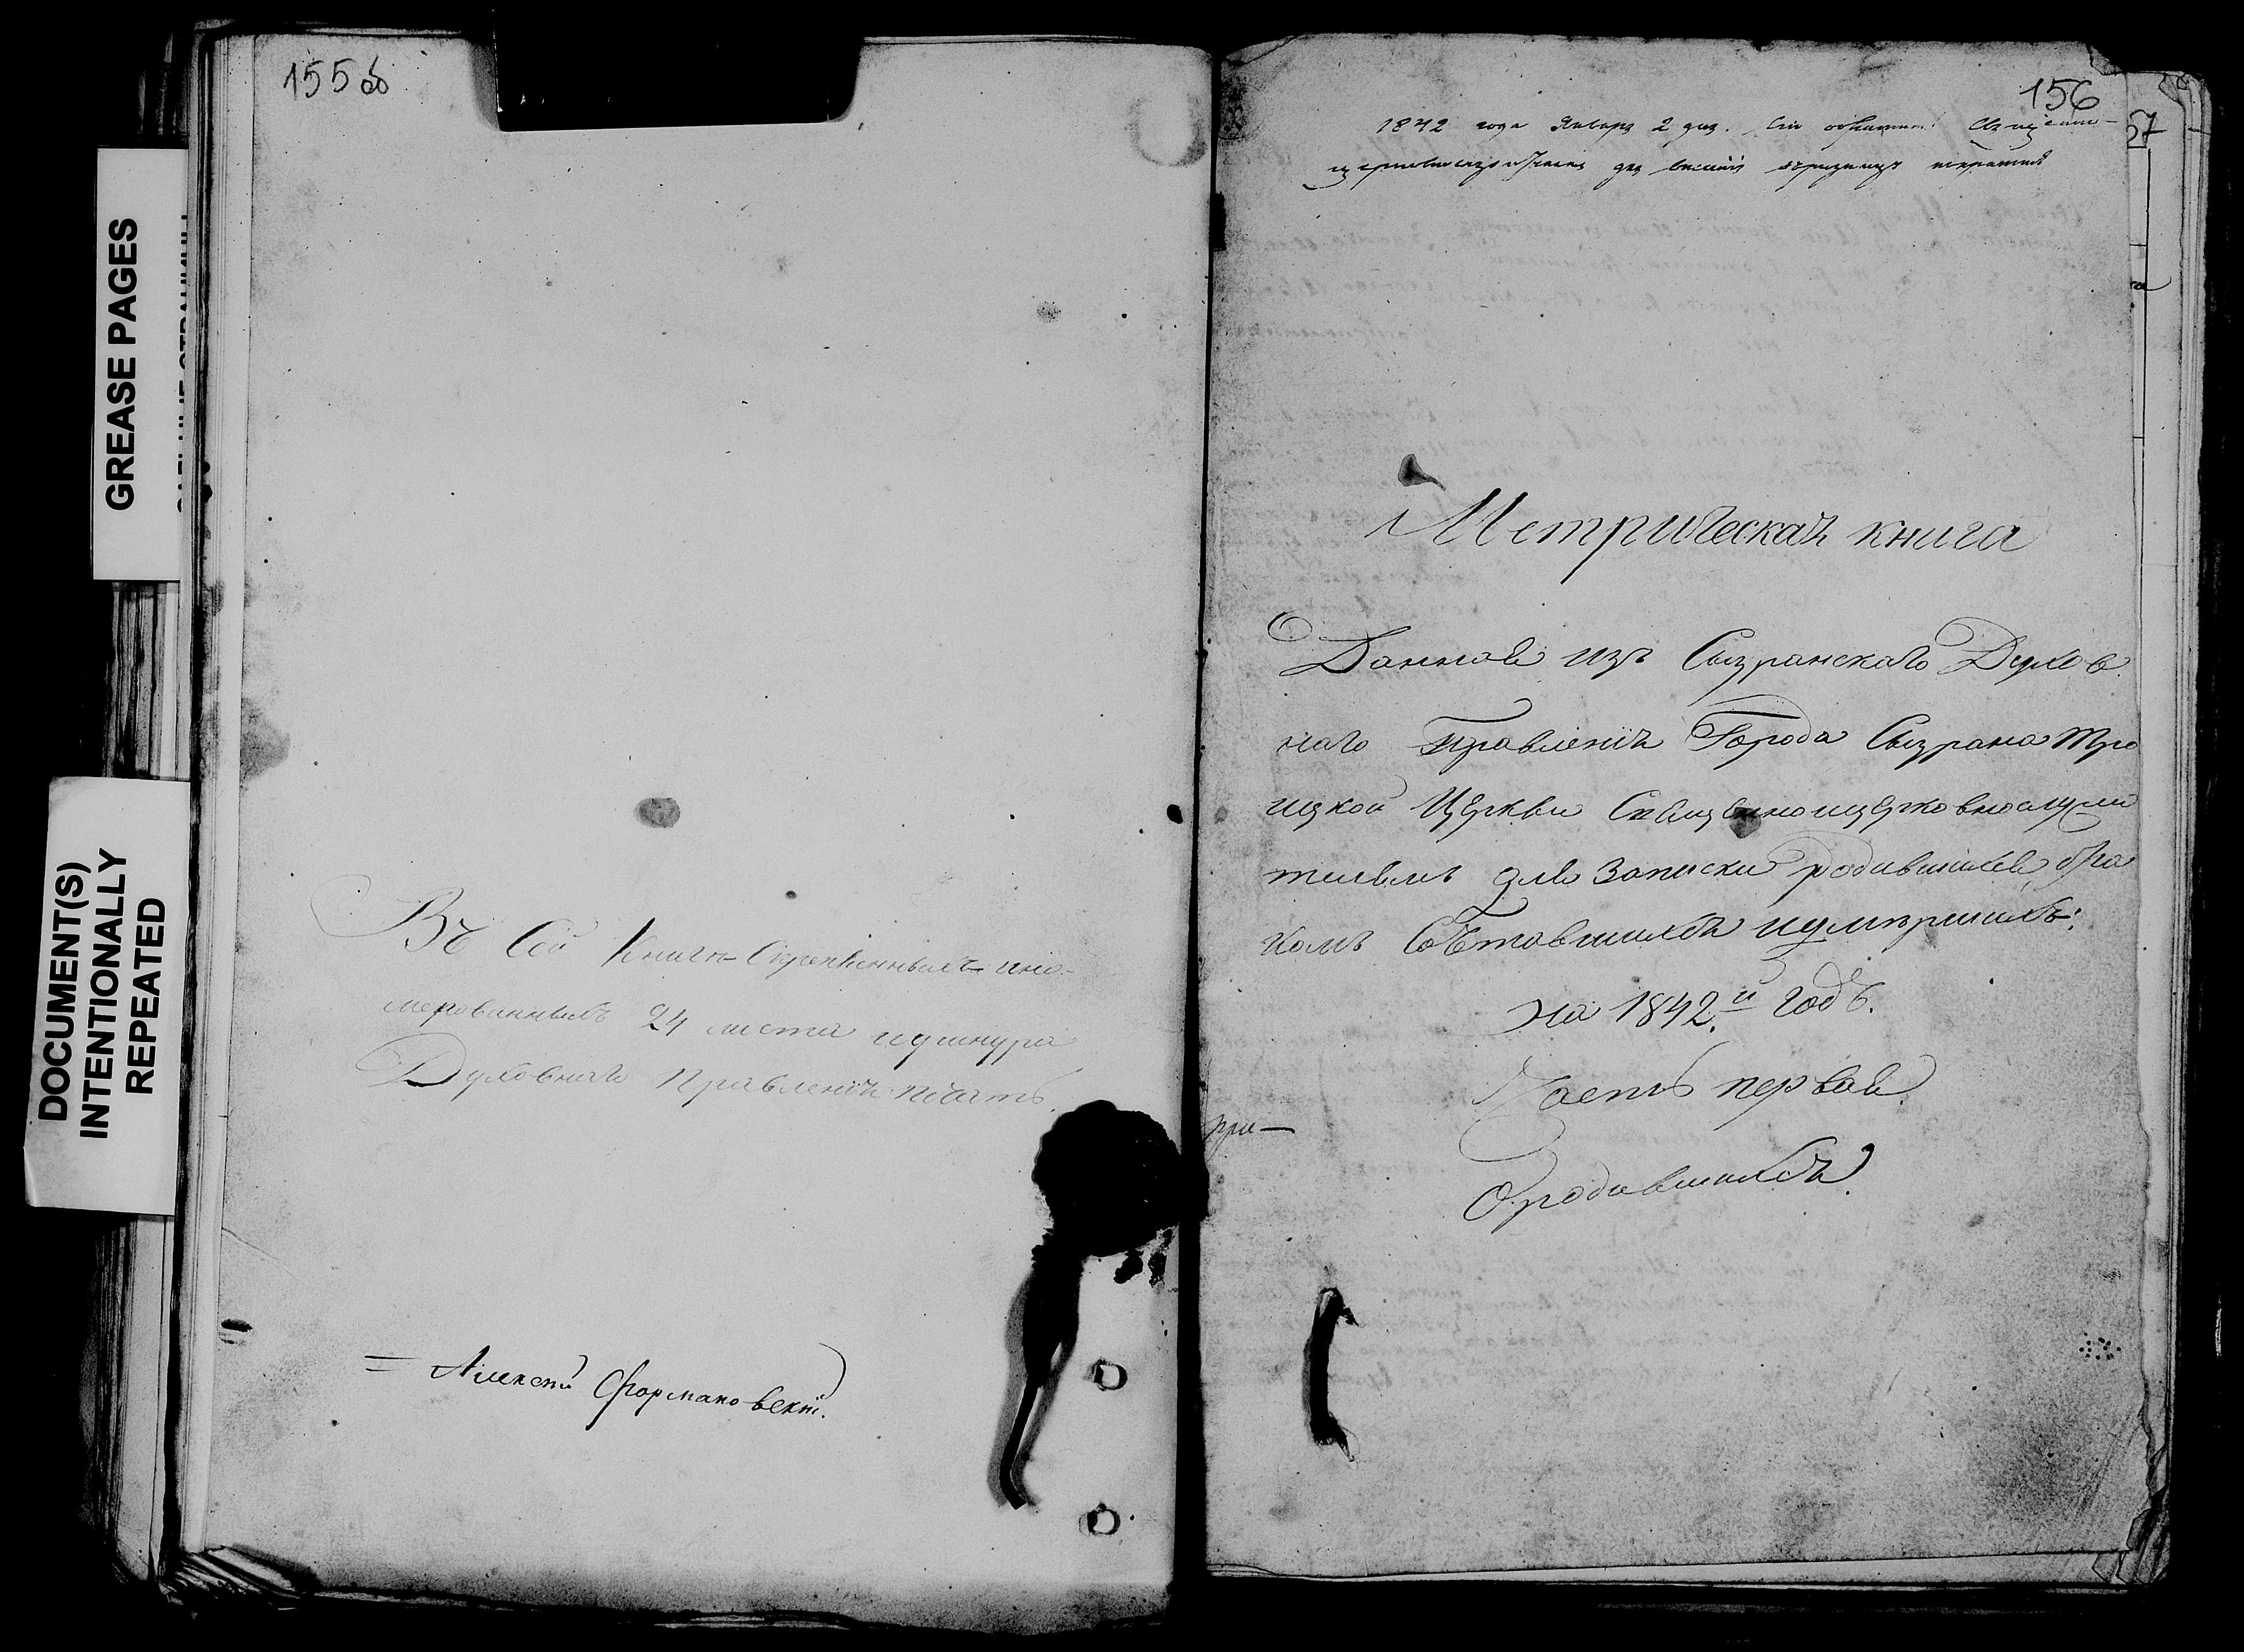 GREASE PAGES
DOCUMENT(S)
INTENTIONALLY
REPEATED
155 об
Въ Сей Книгѣ Скрепленныхъ ино-
мерованныхъ 24 листа иушнура
Духовнаго Правленія печать.
= Алексѣй Формаковскій.
156
57
1842 года Января 2 дня. Священо-
для
Метрическая книга
Данная изъ Сызранскаго Духов
наго Правленія Города Сызрана Тро
ицкой Церкви Священноцерковнослужи
телямъ для Записки родившихся, бра
комъ Сочетавшихся иумершихъ:
на 1842.й годъ.
Часть первая
О родившихся.
при—